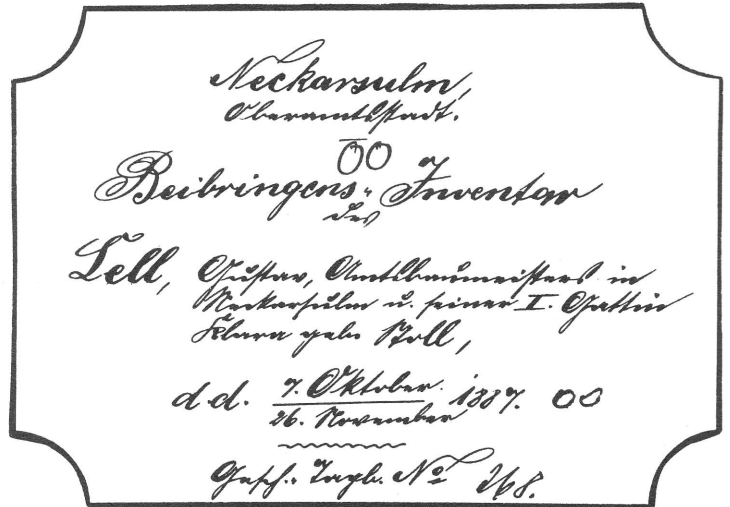 Neckarsulm,
Oberamtsstadt.
Beibringens-Inventar
des
Lell, Gustav, Amtsbaumeisters in
Neckarsulm u. seiner I. Gattin
Klara geb. Stoll,
d.d. 7. Oktober
26. November 1887.
Gesch. Tagb. No 268.